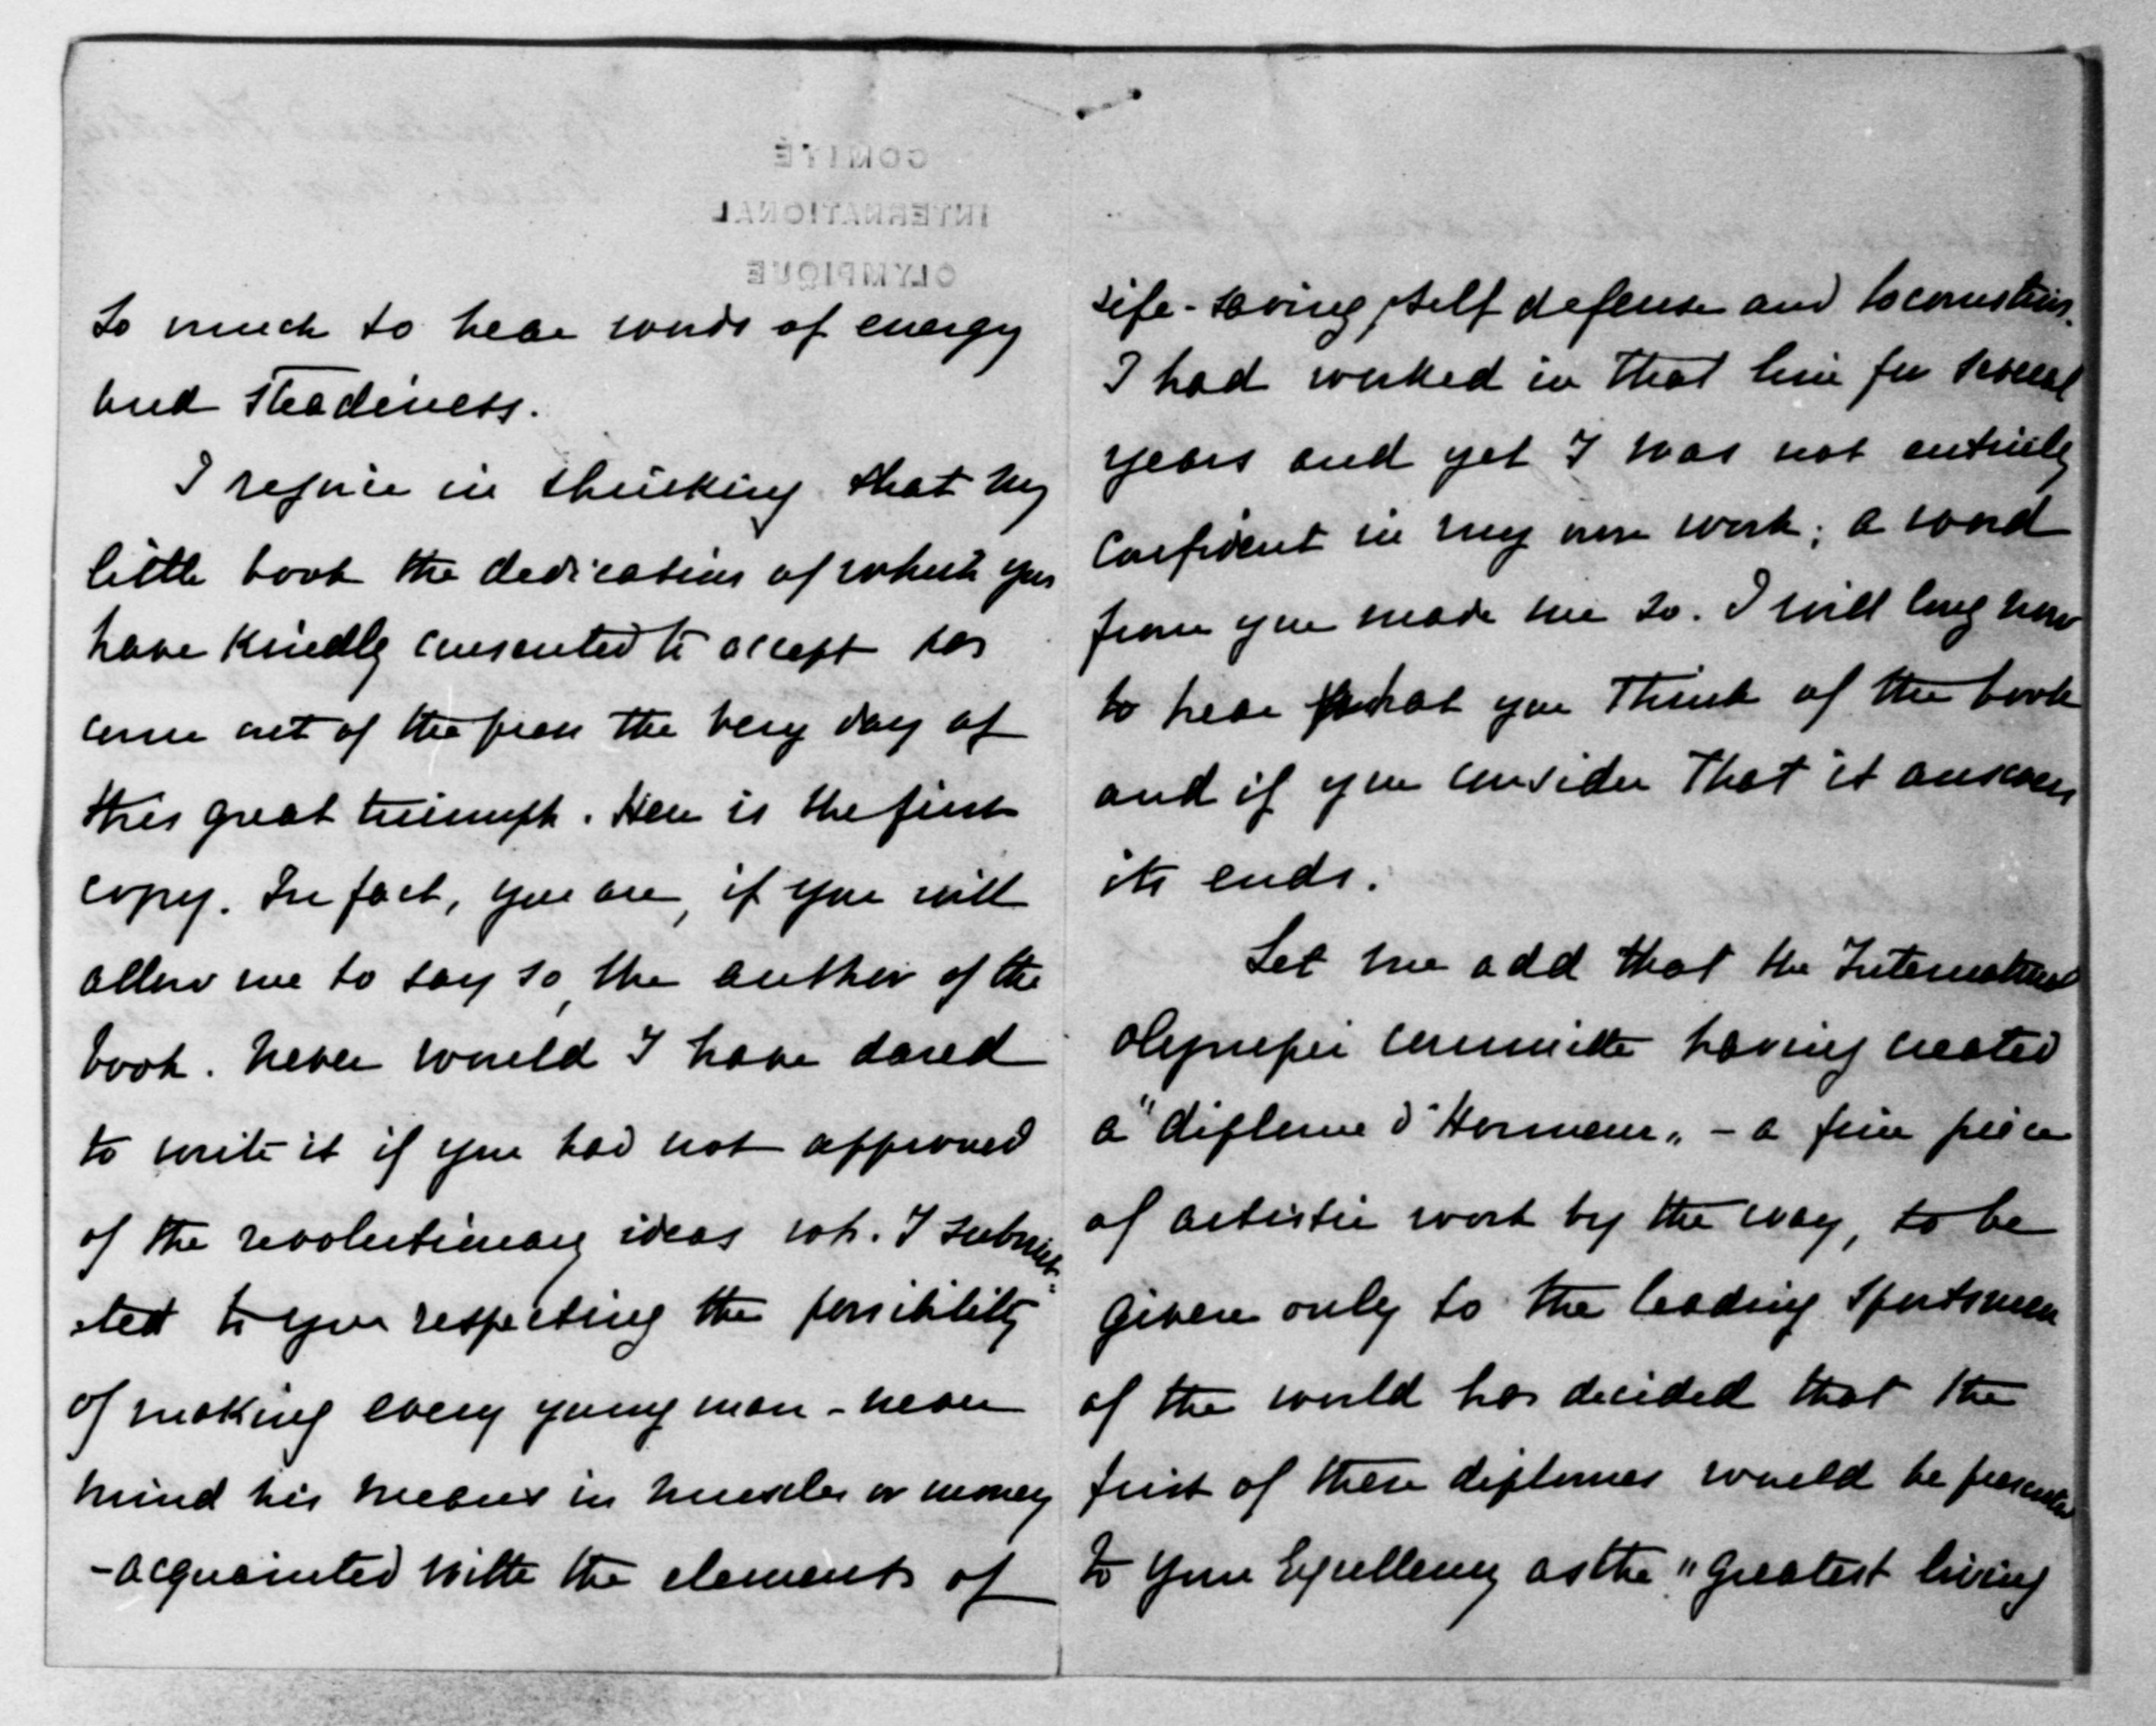 COMITÉ
INTERNATIONAL
OLYMPIQUE
so much to hear words of energy
and steadiness.
I rejoice in thinking that my
little book the dedication of which you
have kindly consented to accept has
come out of the press the very day of
this great triumph. Here is the first
copy. In fact, you are, if you will
allow me to say so, the author of the
book. Never would I have dared
to write it if you had not approved
of the revolutionary ideas wh. I submit-
ted to you respecting the possibility
of making every young man - never
mind his means in muscles or money
- acquainted with the elements of
life-saving, self defense and locomotion.
I had worked in that line for several
years and yet I was not entirely
confident in my own work; a word
from you made me so. I will long now
to hear what you think of the book
and if you consider that it answers
its ends.
Let me add that the International
Olympic committee having created
a "diplome d'Honneur" - a fine piece
of artistic work by the way, to be
given only to the leading sportsmen
of the world has decided that the
first of these diplomes would be presented
to your Excellency as the "greatest living